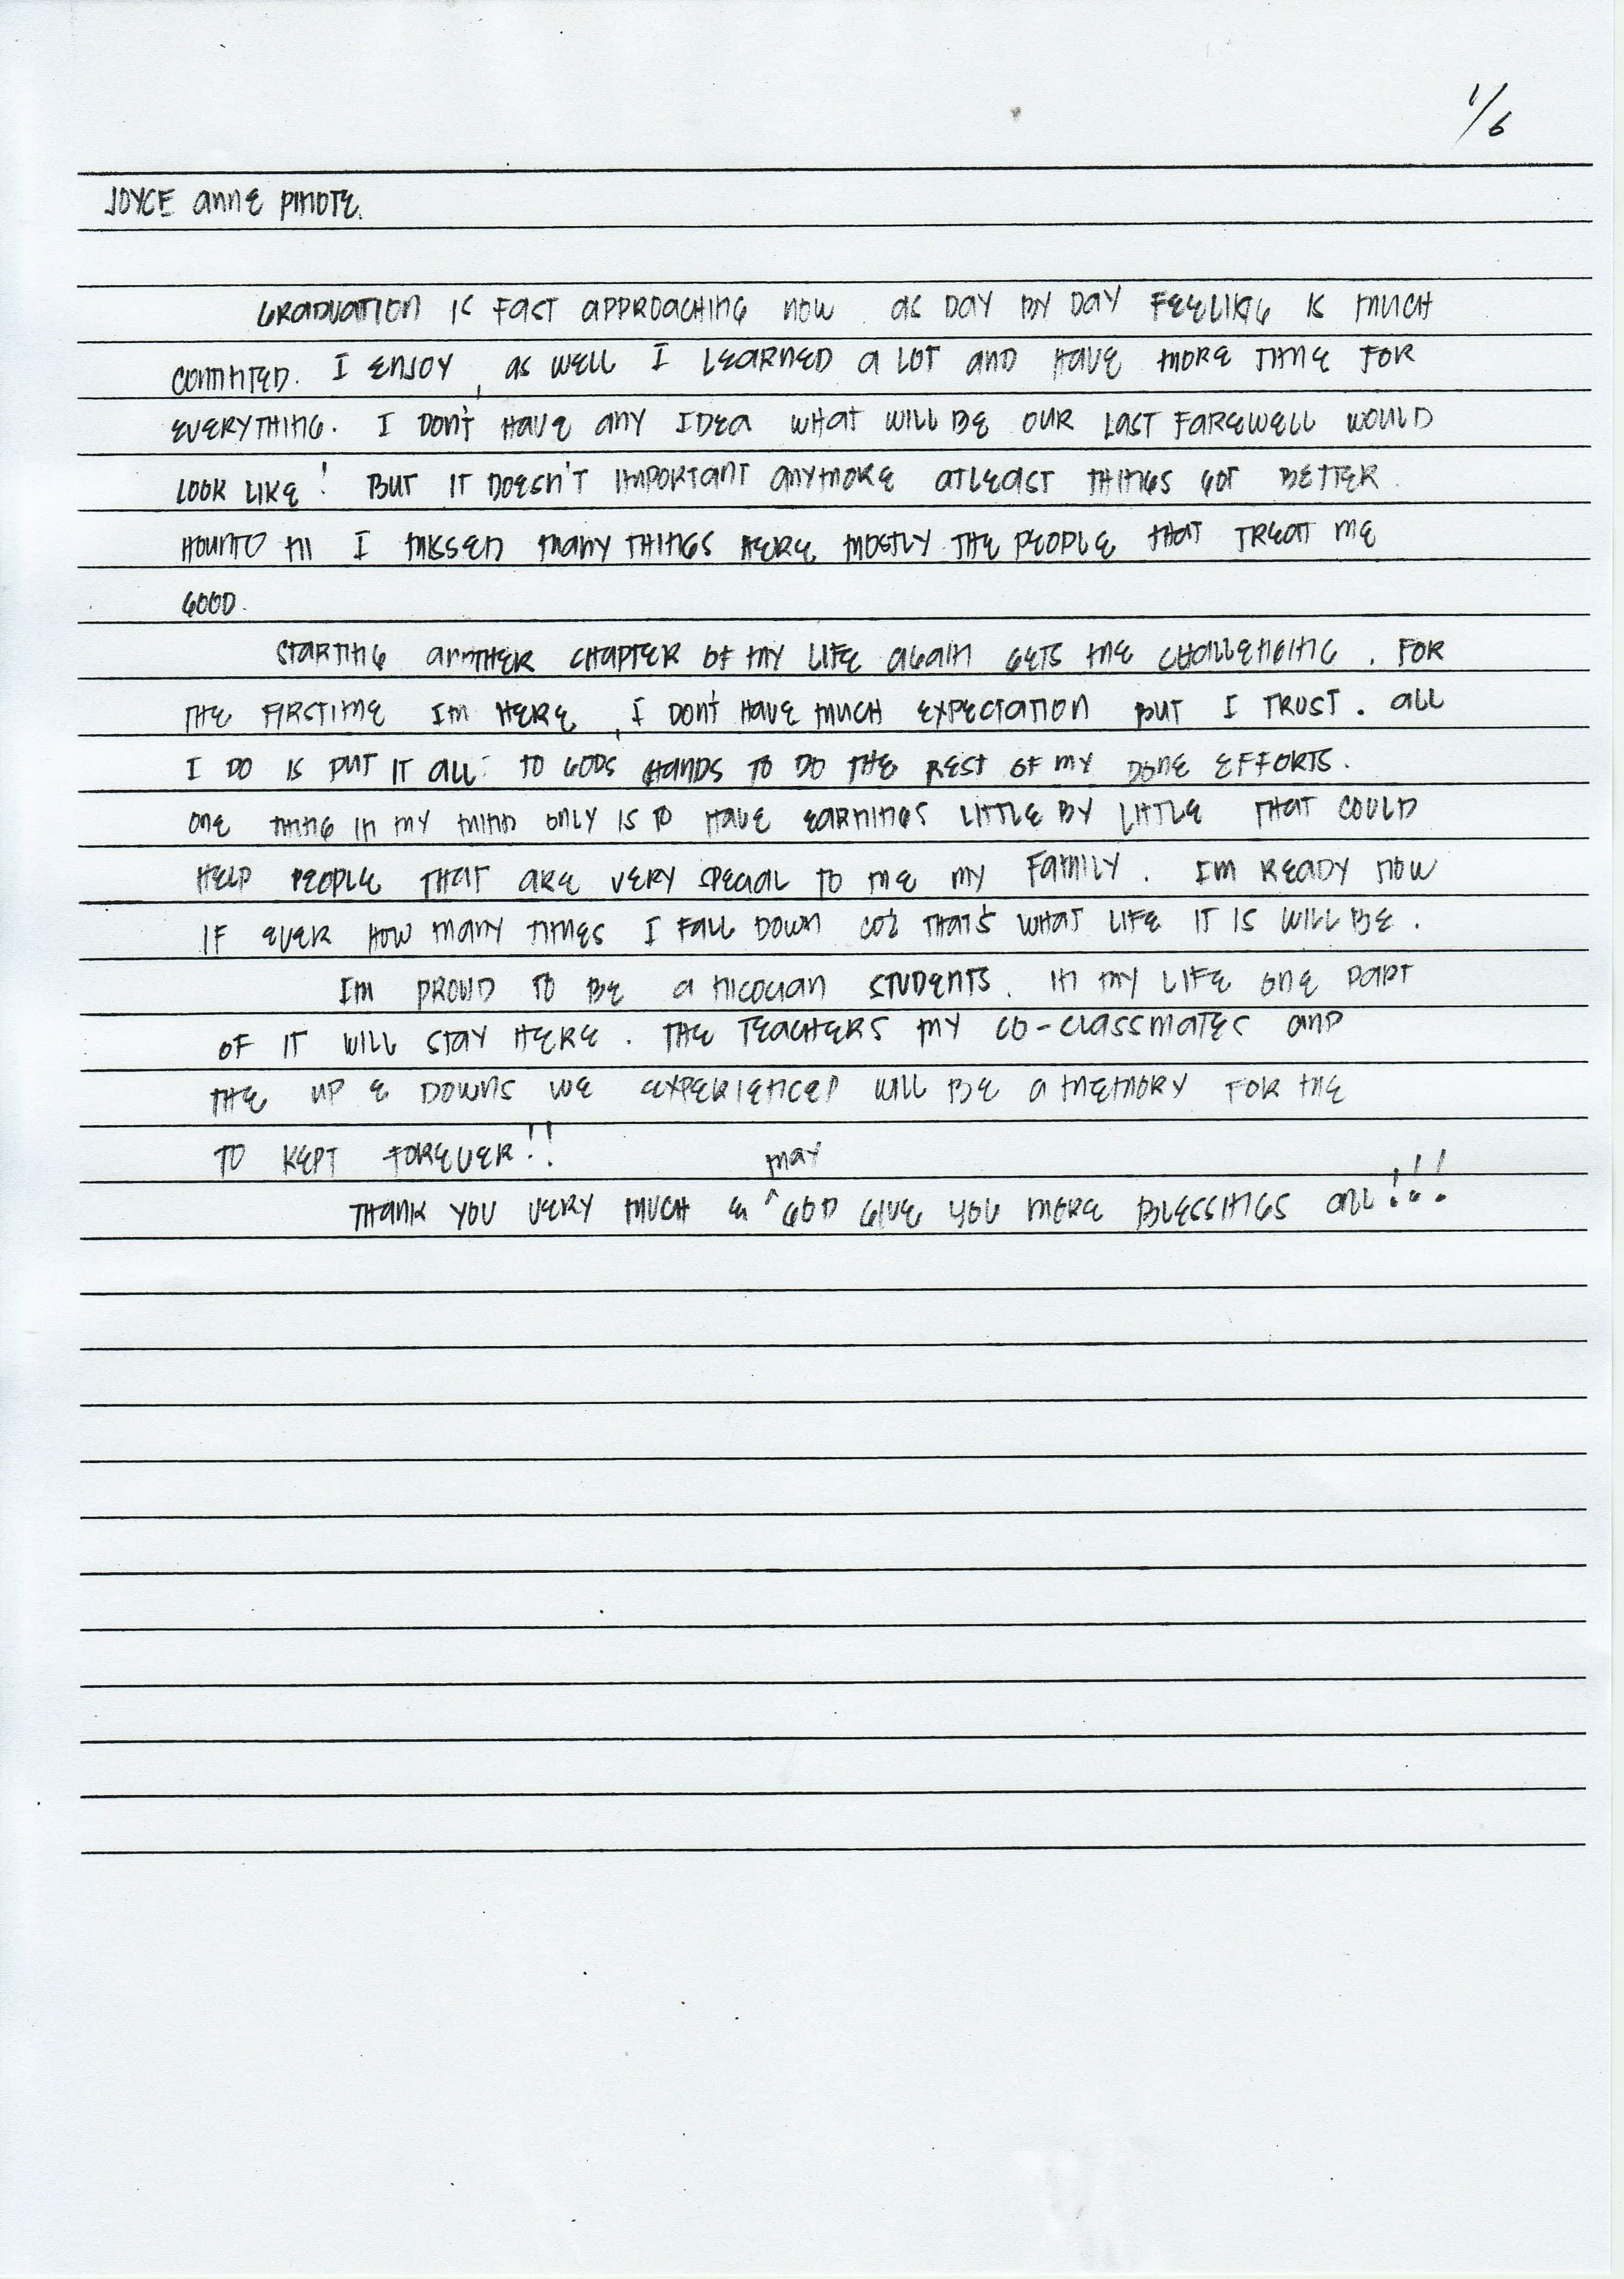 1/6
JOYCE anne PINOTE.
GRADUATION IS FAST APPROACHING NOW. AS DAY BY DAY FEELING IS MUCH
COMMITED. I ENJOY, AS WELL I LEARNED A LOT AND HAVE MORE TIME FOR
EVERYTHING. I DON'T HAVE ANY IDEA WHAT WILL BE OUR LAST FAREWELL WOULD
LOOK LIKE! BUT IT DOESN'T IMPORTANT ANYMORE ATLEAST THINGS GOT BETTER.
I MISSED MANY THINGS HERE MOSTLY THE PEOPLE THAT TREAT ME
GOOD.
STARTING ANOTHER CHAPTER OF MY LIFE AGAIN GETS ME CHALLENGING. FOR
THE FIRSTIME IM HERE, I DON'T HAVE MUCH EXPECTATION BUT I TRUST. ALL
I DO IS PUT IT ALL TO GODS HANDS TO DO THE REST OF MY DONE EFFORTS.
ONE THING IN MY MIND ONLY IS TO HAVE EARNINGS LITTLE BY LITTLE THAT COULD
HELP PEOPLE THAT ARE VERY SPECIAL TO ME MY FAMILY. IM READY NOW
IF EVER HOW MANY TIMES I FALL DOWN COZ THAT'S WHAT LIFE IT IS WILL BE.
IM PROUD TO BE A NICOLIAN STUDENTS. IN MY LIFE ONE PART
OF IT WILL STAY HERE. THE TEACHERS MY CO-CLASSMATES AND
THE UP & DOWNS WE EXPERIENCED WILL BE A MEMORY FOR ME
TO KEPT FOREVER!!
THANK YOU VERY MUCH & MAY GOD GIVE YOU MORE BLESSINGS ALL!!!